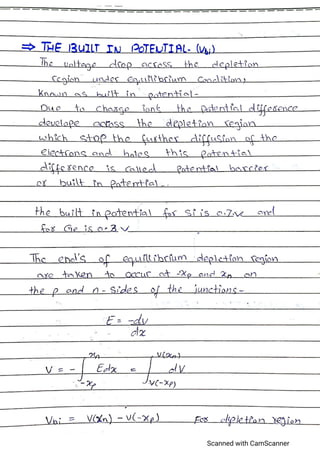 ⇒ THE BUILT IN POTENTIAL- (Vbi)
The voltage drop across the depletion
region under equilibrium condition,
Known as built in potential-
Due to charge ions the potential difference
develope across the depletion region
which stop the further diffusion of the
electrons and holes this potential
difference is called potential barrier
or built in potential-.
the built in potential for Si is 0.7v and
for Ge is 0.3 v
The end's of equilibrium depletion region
are taken to occur at -xp and xn on
the p and n-sides of the junctions-
E = -dv
dx
xn V(xn)
V = - ∫ Edx = ∫ dV
-xp V(-xp)
Vbi = V(xn) - V(-xp) For depletion region
Scanned with CamScanner